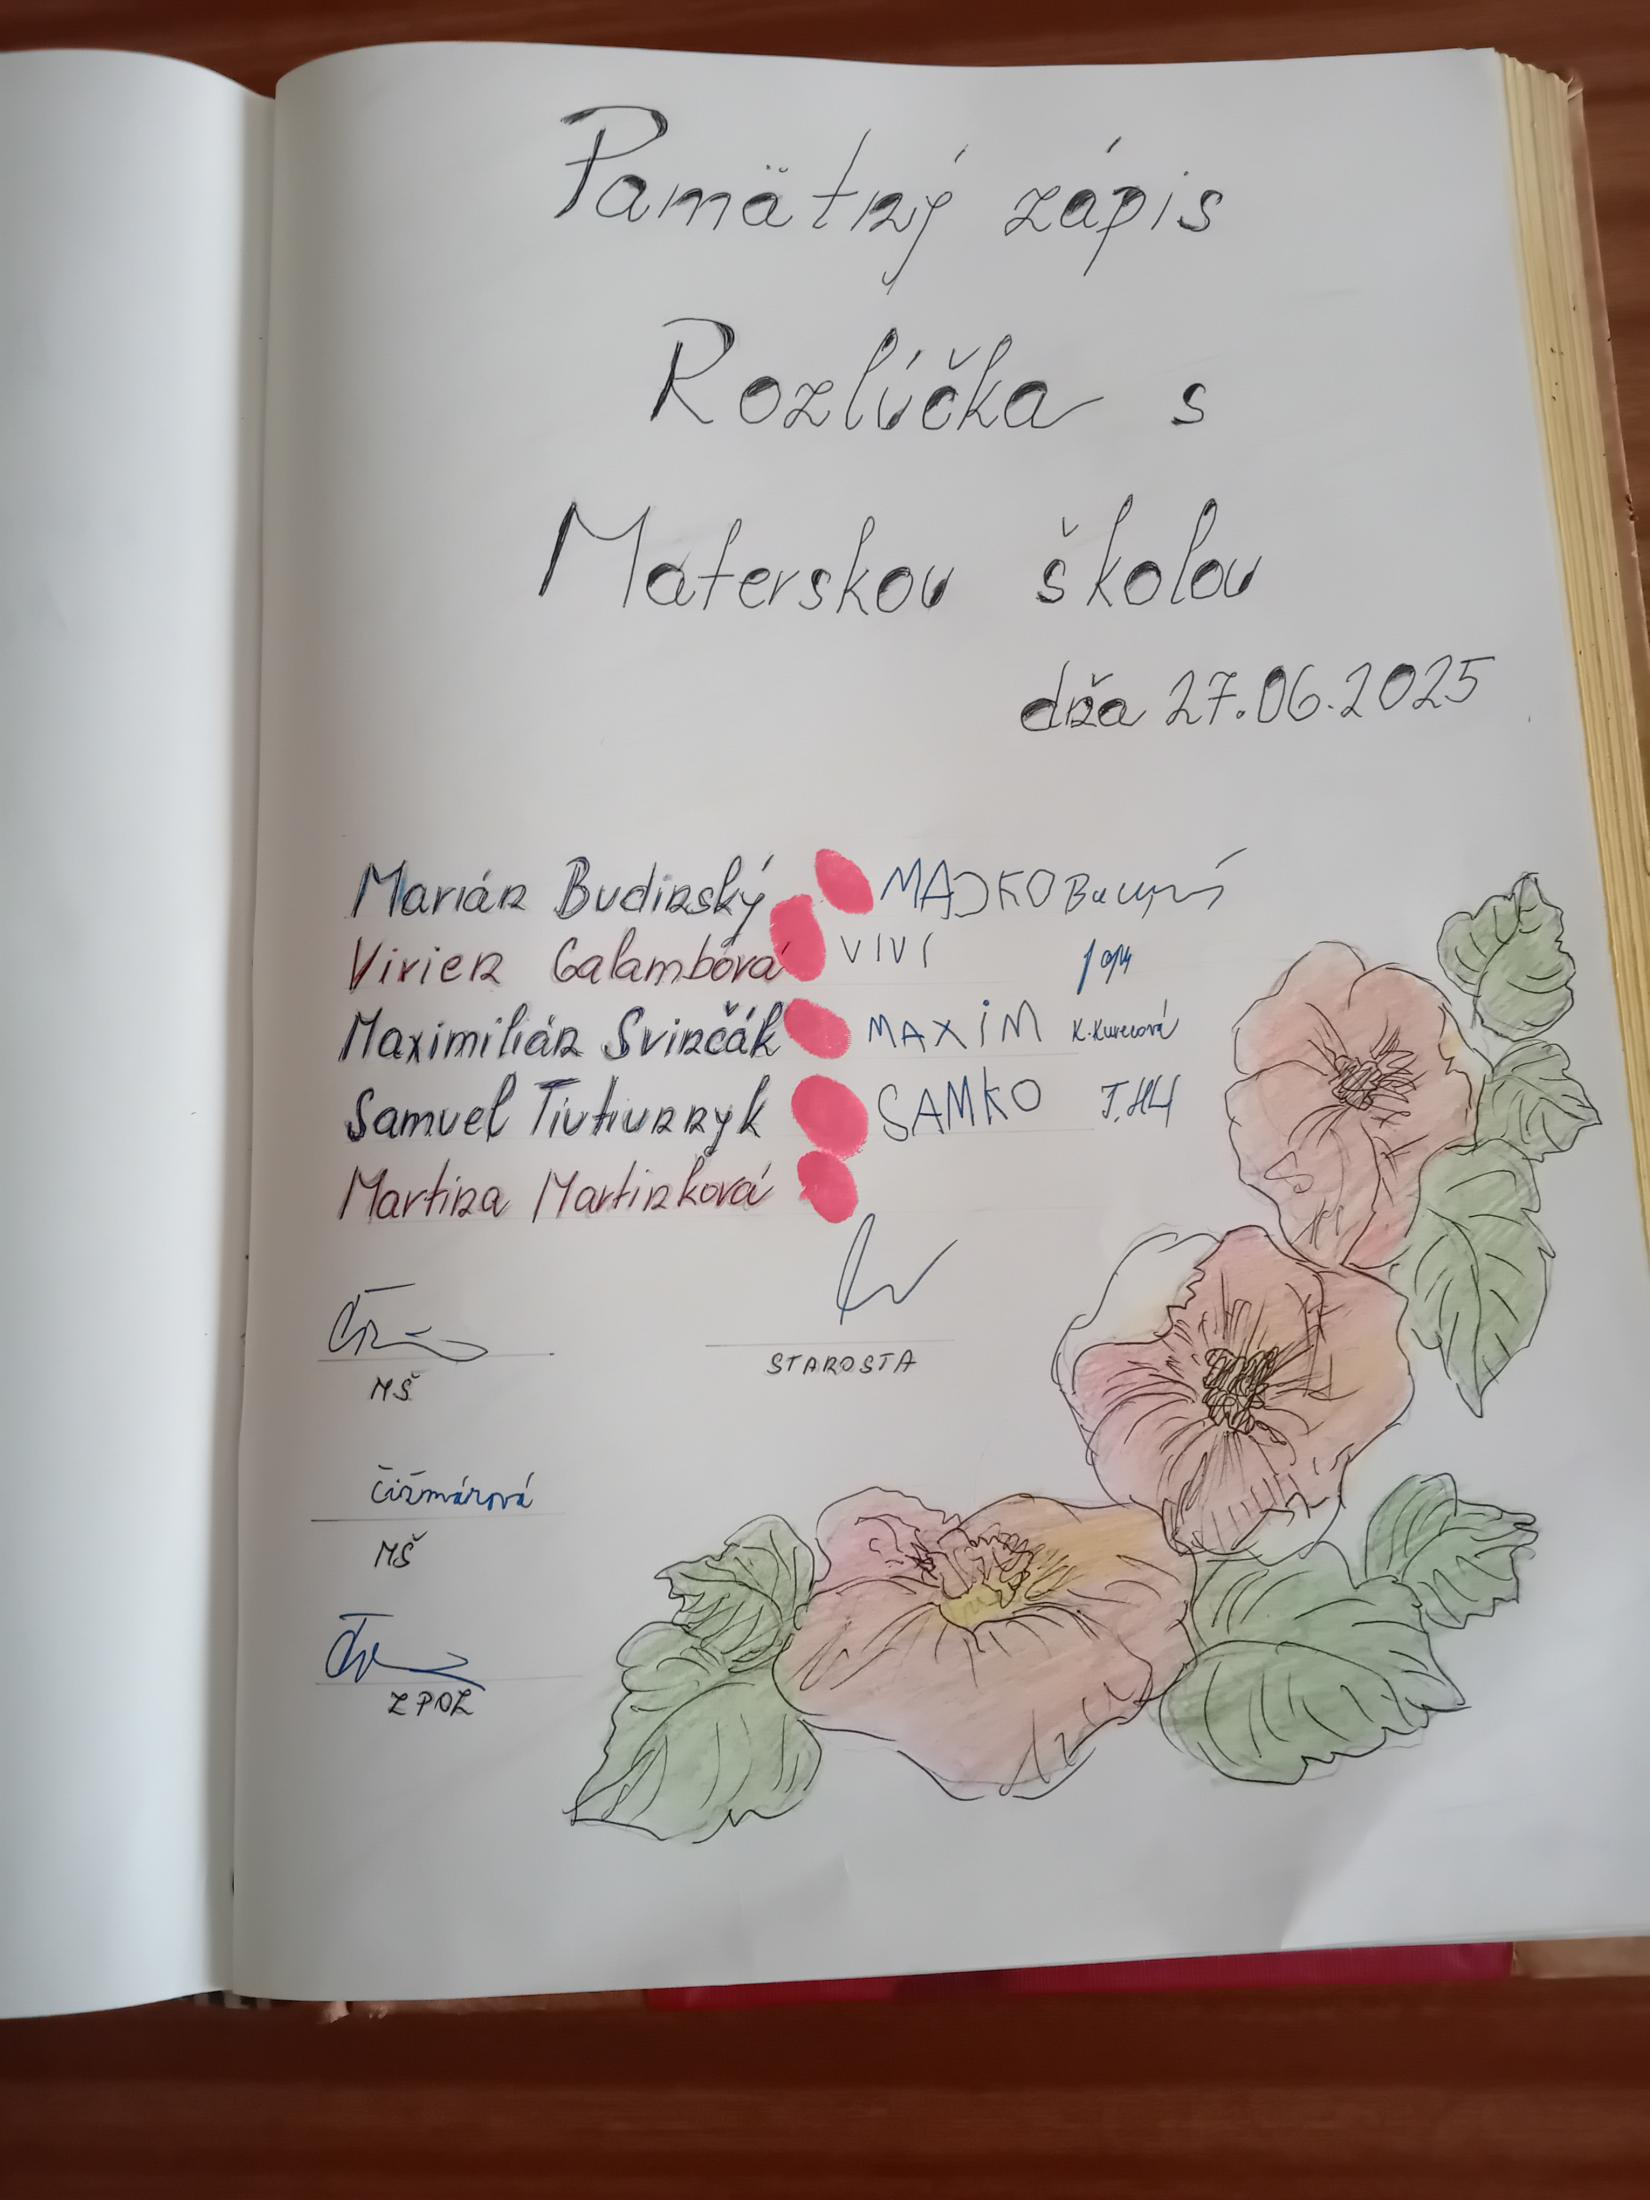 Pamätný zápis
Rozlúčka s
Materskou školou
dňa 27.06.2025
Marián Budinský MAJKO
Vivien Galambová VIVI
Maximilián Svinčák MAXIM K.Kurecová
Samuel Tiutiunnyk SAMKO
Martina Martinková
STAROSTA
MŠ
Čižmárová
MŠ
ZPOZ